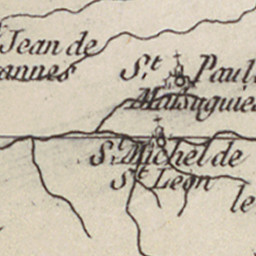 Jean de
annes
St. Paul
Malauguies
St. Michel de
St. Leon
le